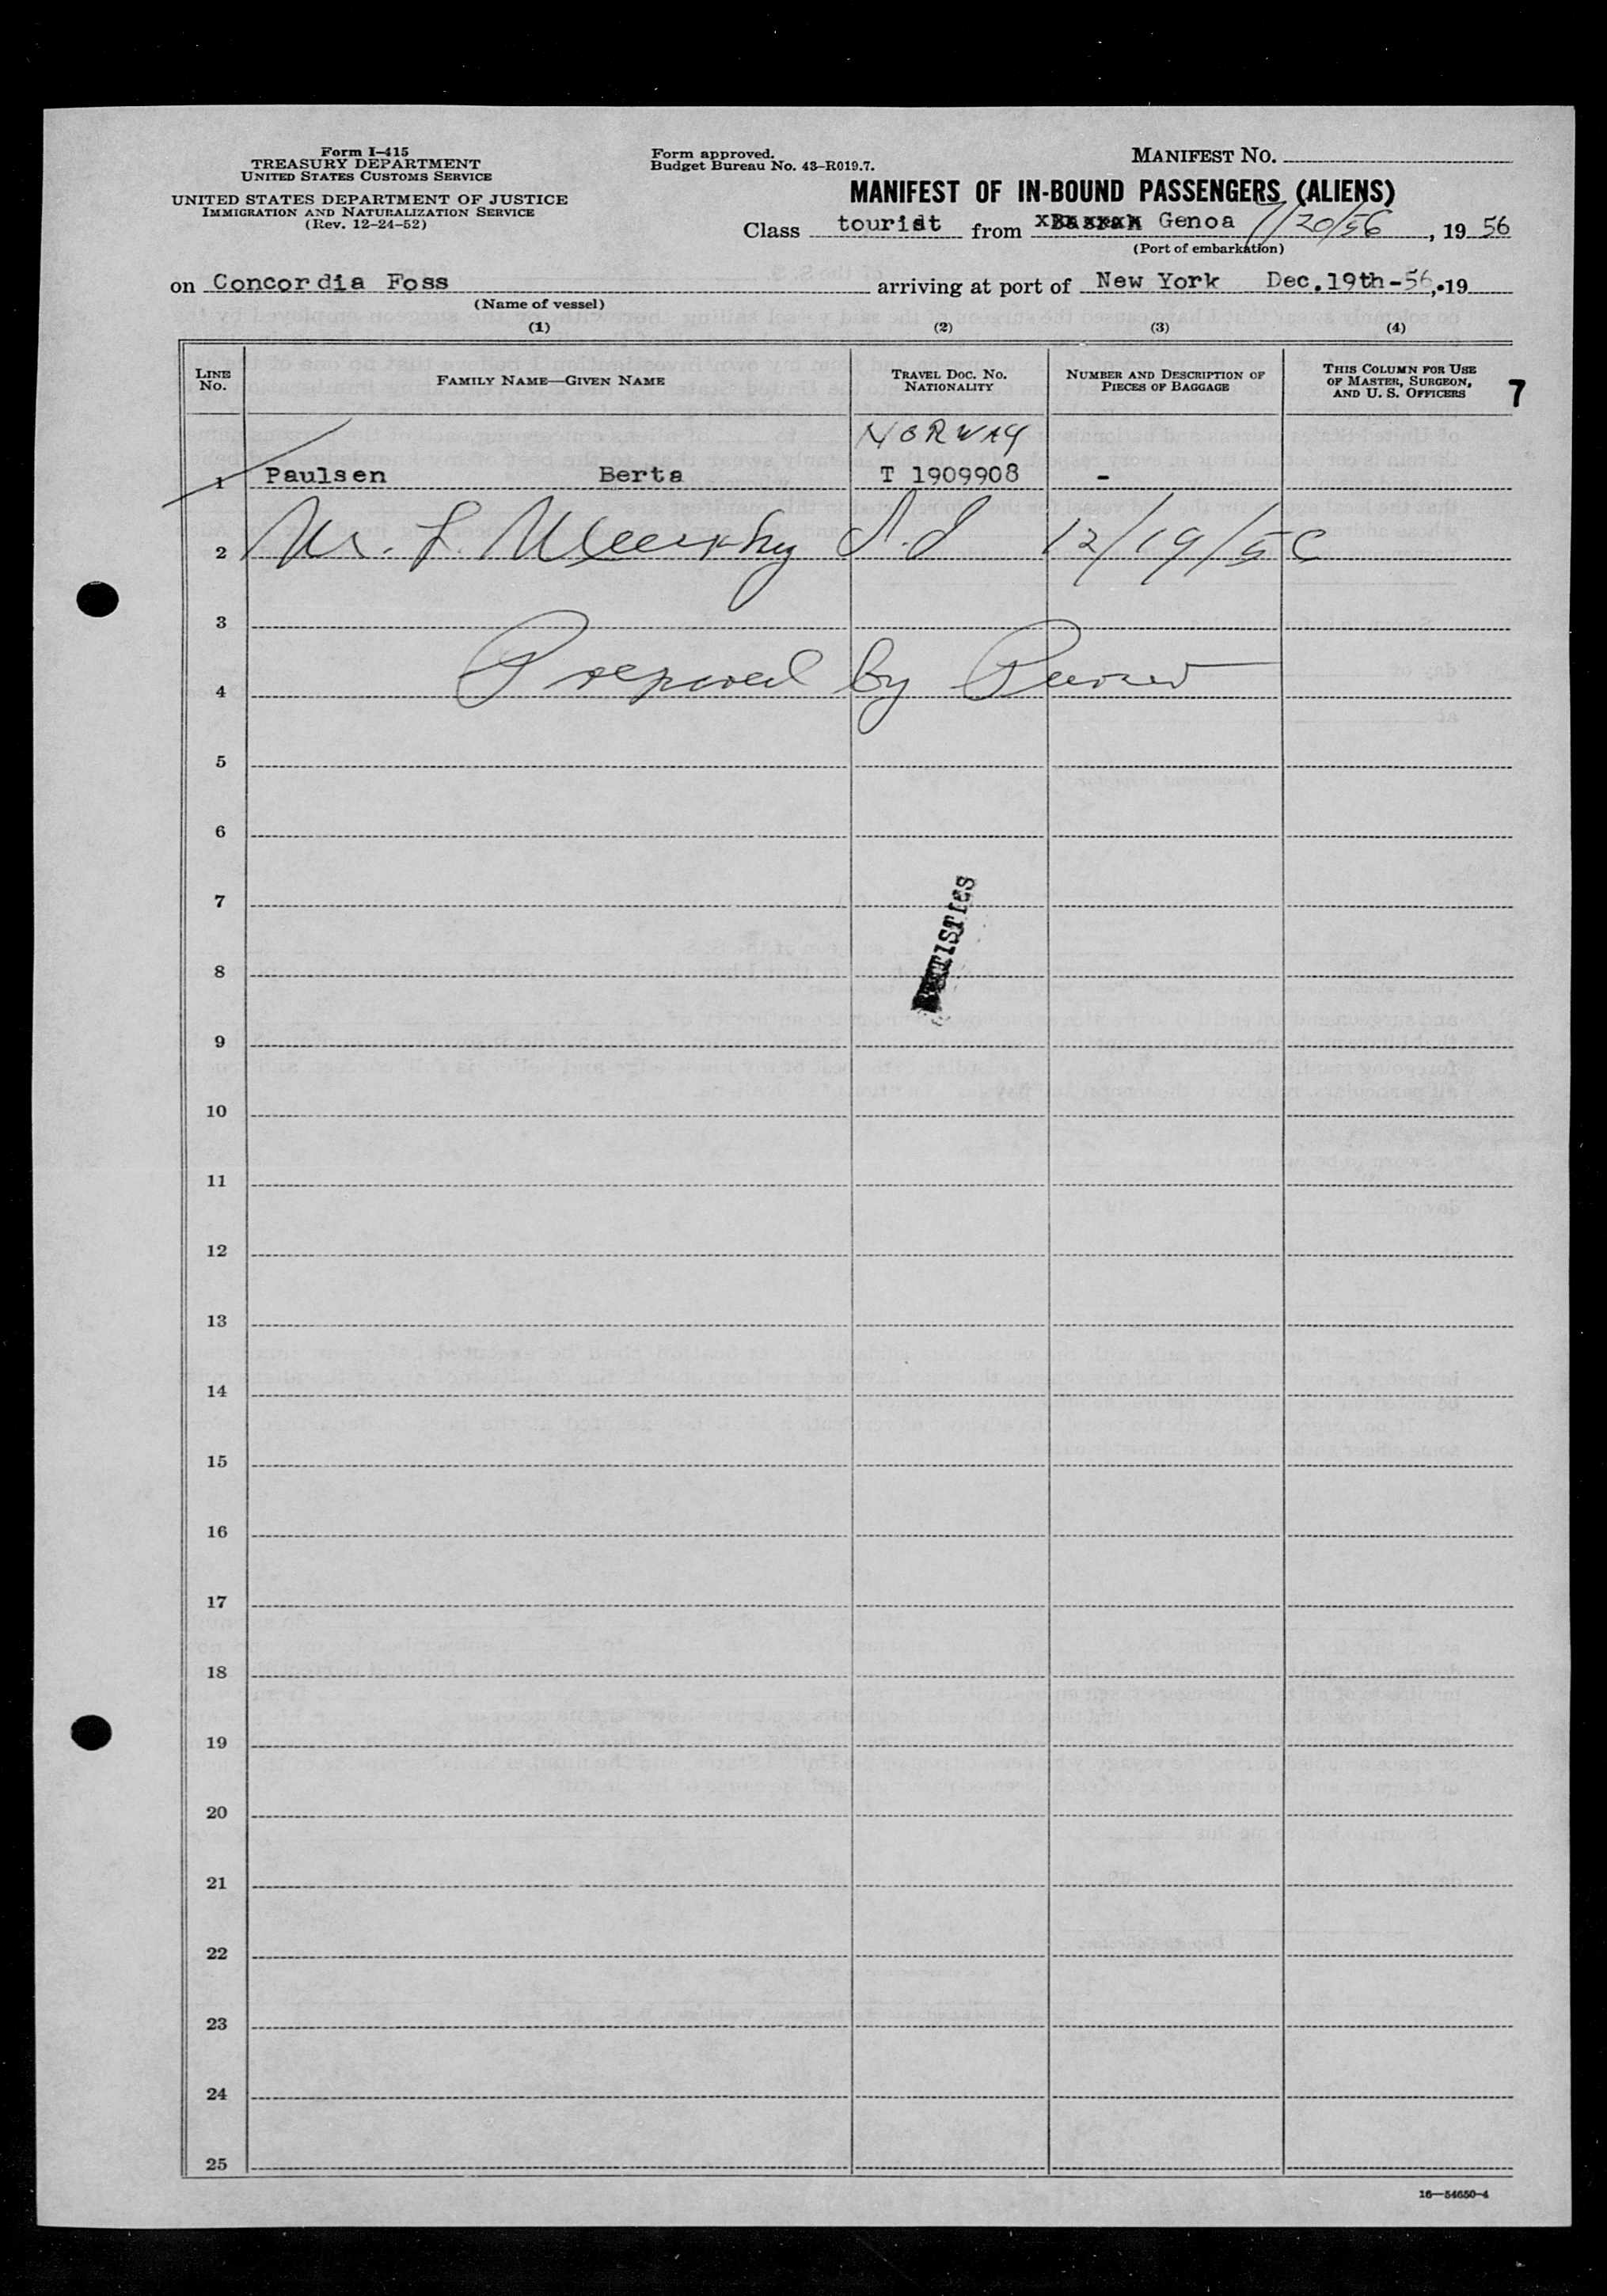 Form I-415
TREASURY DEPARTMENT
UNITED STATES CUSTOMS SERVICE
UNITED STATES DEPARTMENT OF JUSTICE
IMMIGRATION AND NATURALIZATION SERVICE
(Rev. 12-24-52)
Form approved.
Budget Bureau No. 43-R019.7.
MANIFEST NO.
MANIFEST OF IN-BOUND PASSENGERS (ALIENS)
Class tourist from Genoa /20/56, 19 56
(Port of embarkation)
on Concordia Foss arriving at port of New York Dec.19th-56, 19
(Name of vessel)
(1) (2) (3) (4)
LINE No. FAMILY NAME—GIVEN NAME TRAVEL DOC. NO. NATIONALITY NUMBER AND DESCRIPTION OF PIECES OF BAGGAGE THIS COLUMN FOR USE OF MASTER, SURGEON, AND U. S. OFFICERS 7
NORWAY
1 Paulsen Berta T 1909908 -
2 L. Murphy 12/19/56
3
Prepared by Purser
4
5
6
7
8
9
10
11
12
13
14
15
16
17
18
19
20
21
22
23
24
25
16—54650-4